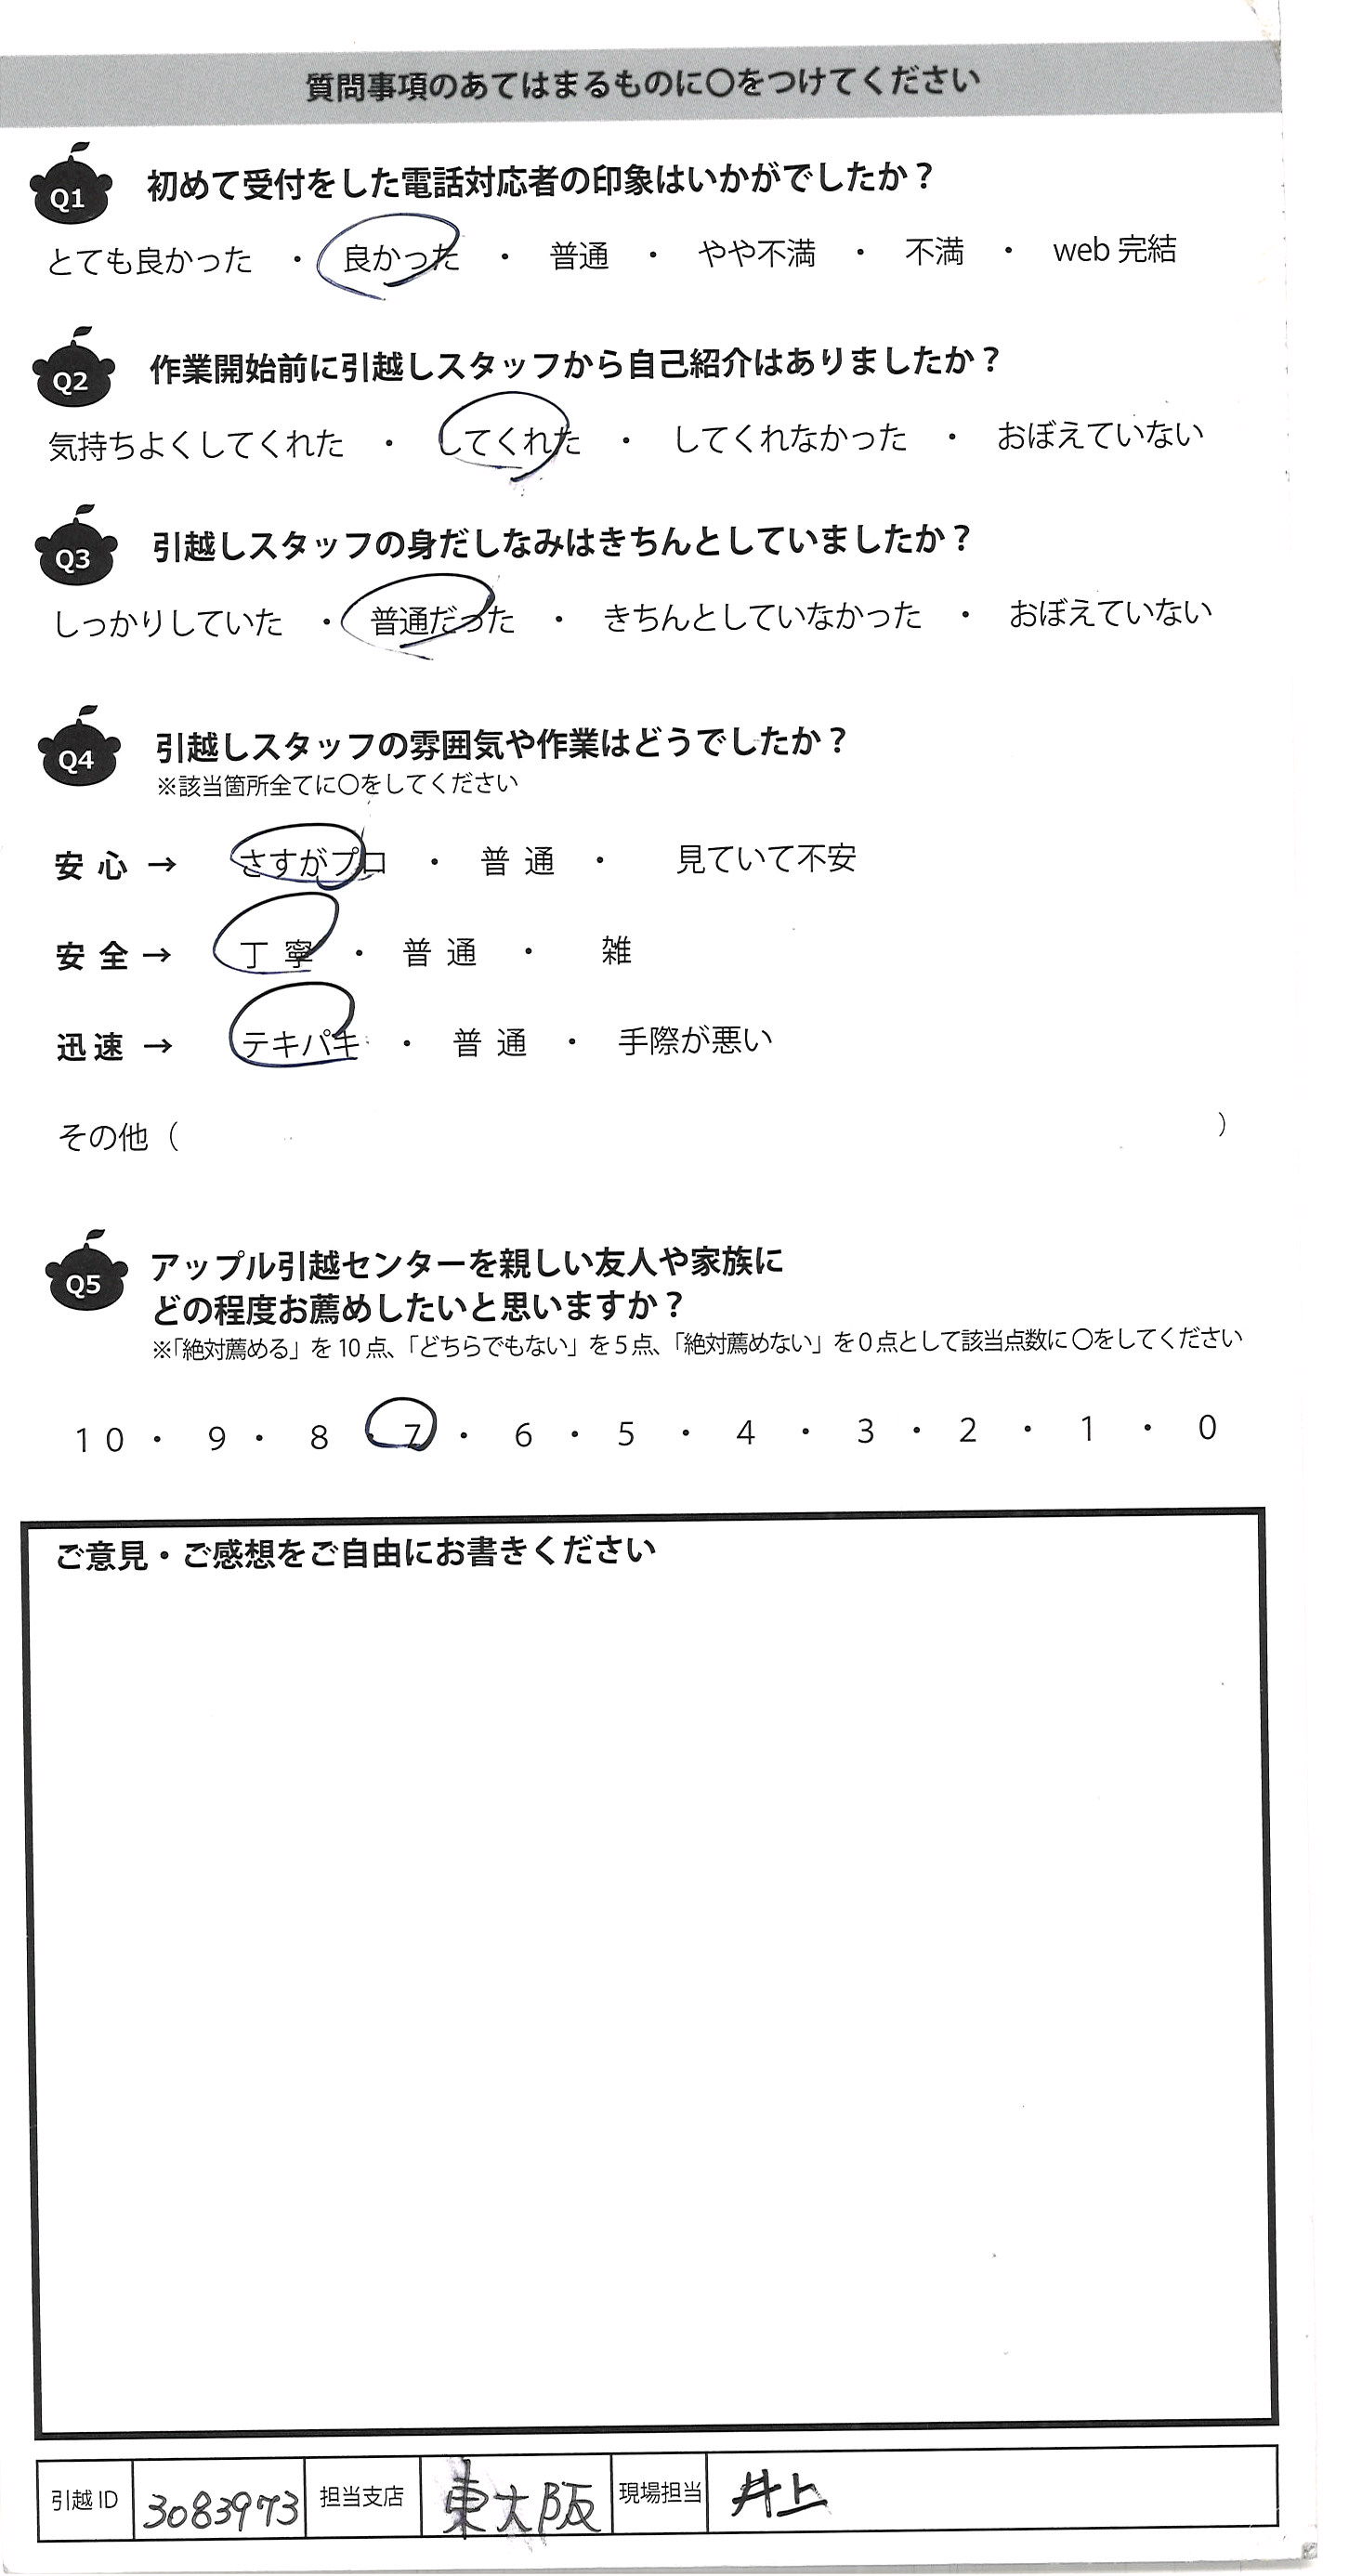 質問事項のあてはまるものに〇をつけてください
Q1 初めて受付をした電話対応者の印象はいかがでしたか？
とても良かった ・ 良かった ・ 普通 ・ やや不満 ・ 不満 ・ web 完結
Q2 作業開始前に引越しスタッフから自己紹介はありましたか？
気持ちよくしてくれた ・ してくれた ・ してくれなかった ・ おぼえていない
Q3 引越しスタッフの身だしなみはきちんとしていましたか？
しっかりしていた ・ 普通だった ・ きちんとしていなかった ・ おぼえていない
Q4 引越しスタッフの雰囲気や作業はどうでしたか？
※該当箇所全てに〇をしてください
安心 → さすがプロ ・ 普通 ・ 見ていて不安
安全 → 丁寧 ・ 普通 ・ 雑
迅速 → テキパキ ・ 普通 ・ 手際が悪い
その他（ ）
Q5 アップル引越センターを親しい友人や家族に
どの程度お薦めしたいと思いますか？
※「絶対薦める」を10点、「どちらでもない」を5点、「絶対薦めない」を0点として該当点数に〇をしてください
10 ・ 9 ・ 8 ・ 7 ・ 6 ・ 5 ・ 4 ・ 3 ・ 2 ・ 1 ・ 0
ご意見・ご感想をご自由にお書きください
引越ID 3083973 担当支店 東大阪 現場担当 井上